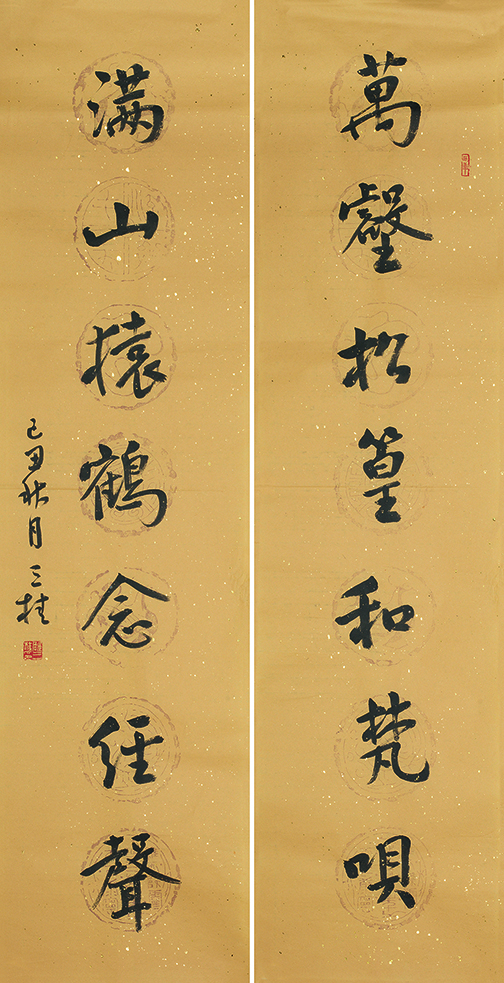 萬壑松篁和梵唄
满山猿鶴念经聲
己丑秋月三桂